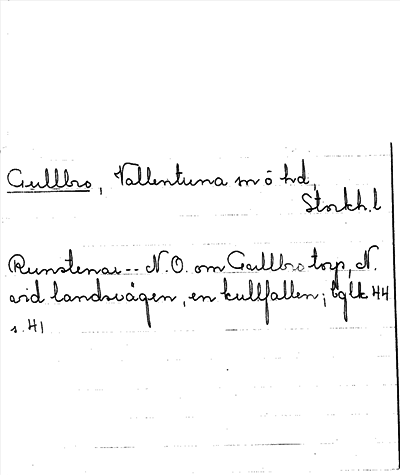 Gullbro, Vallentuna sn o hd,
Stockh. l
Runstenar -- N.O. om Gullbro torp, N.
vid landsvägen, en kullfallen; bglk 44
s. 41